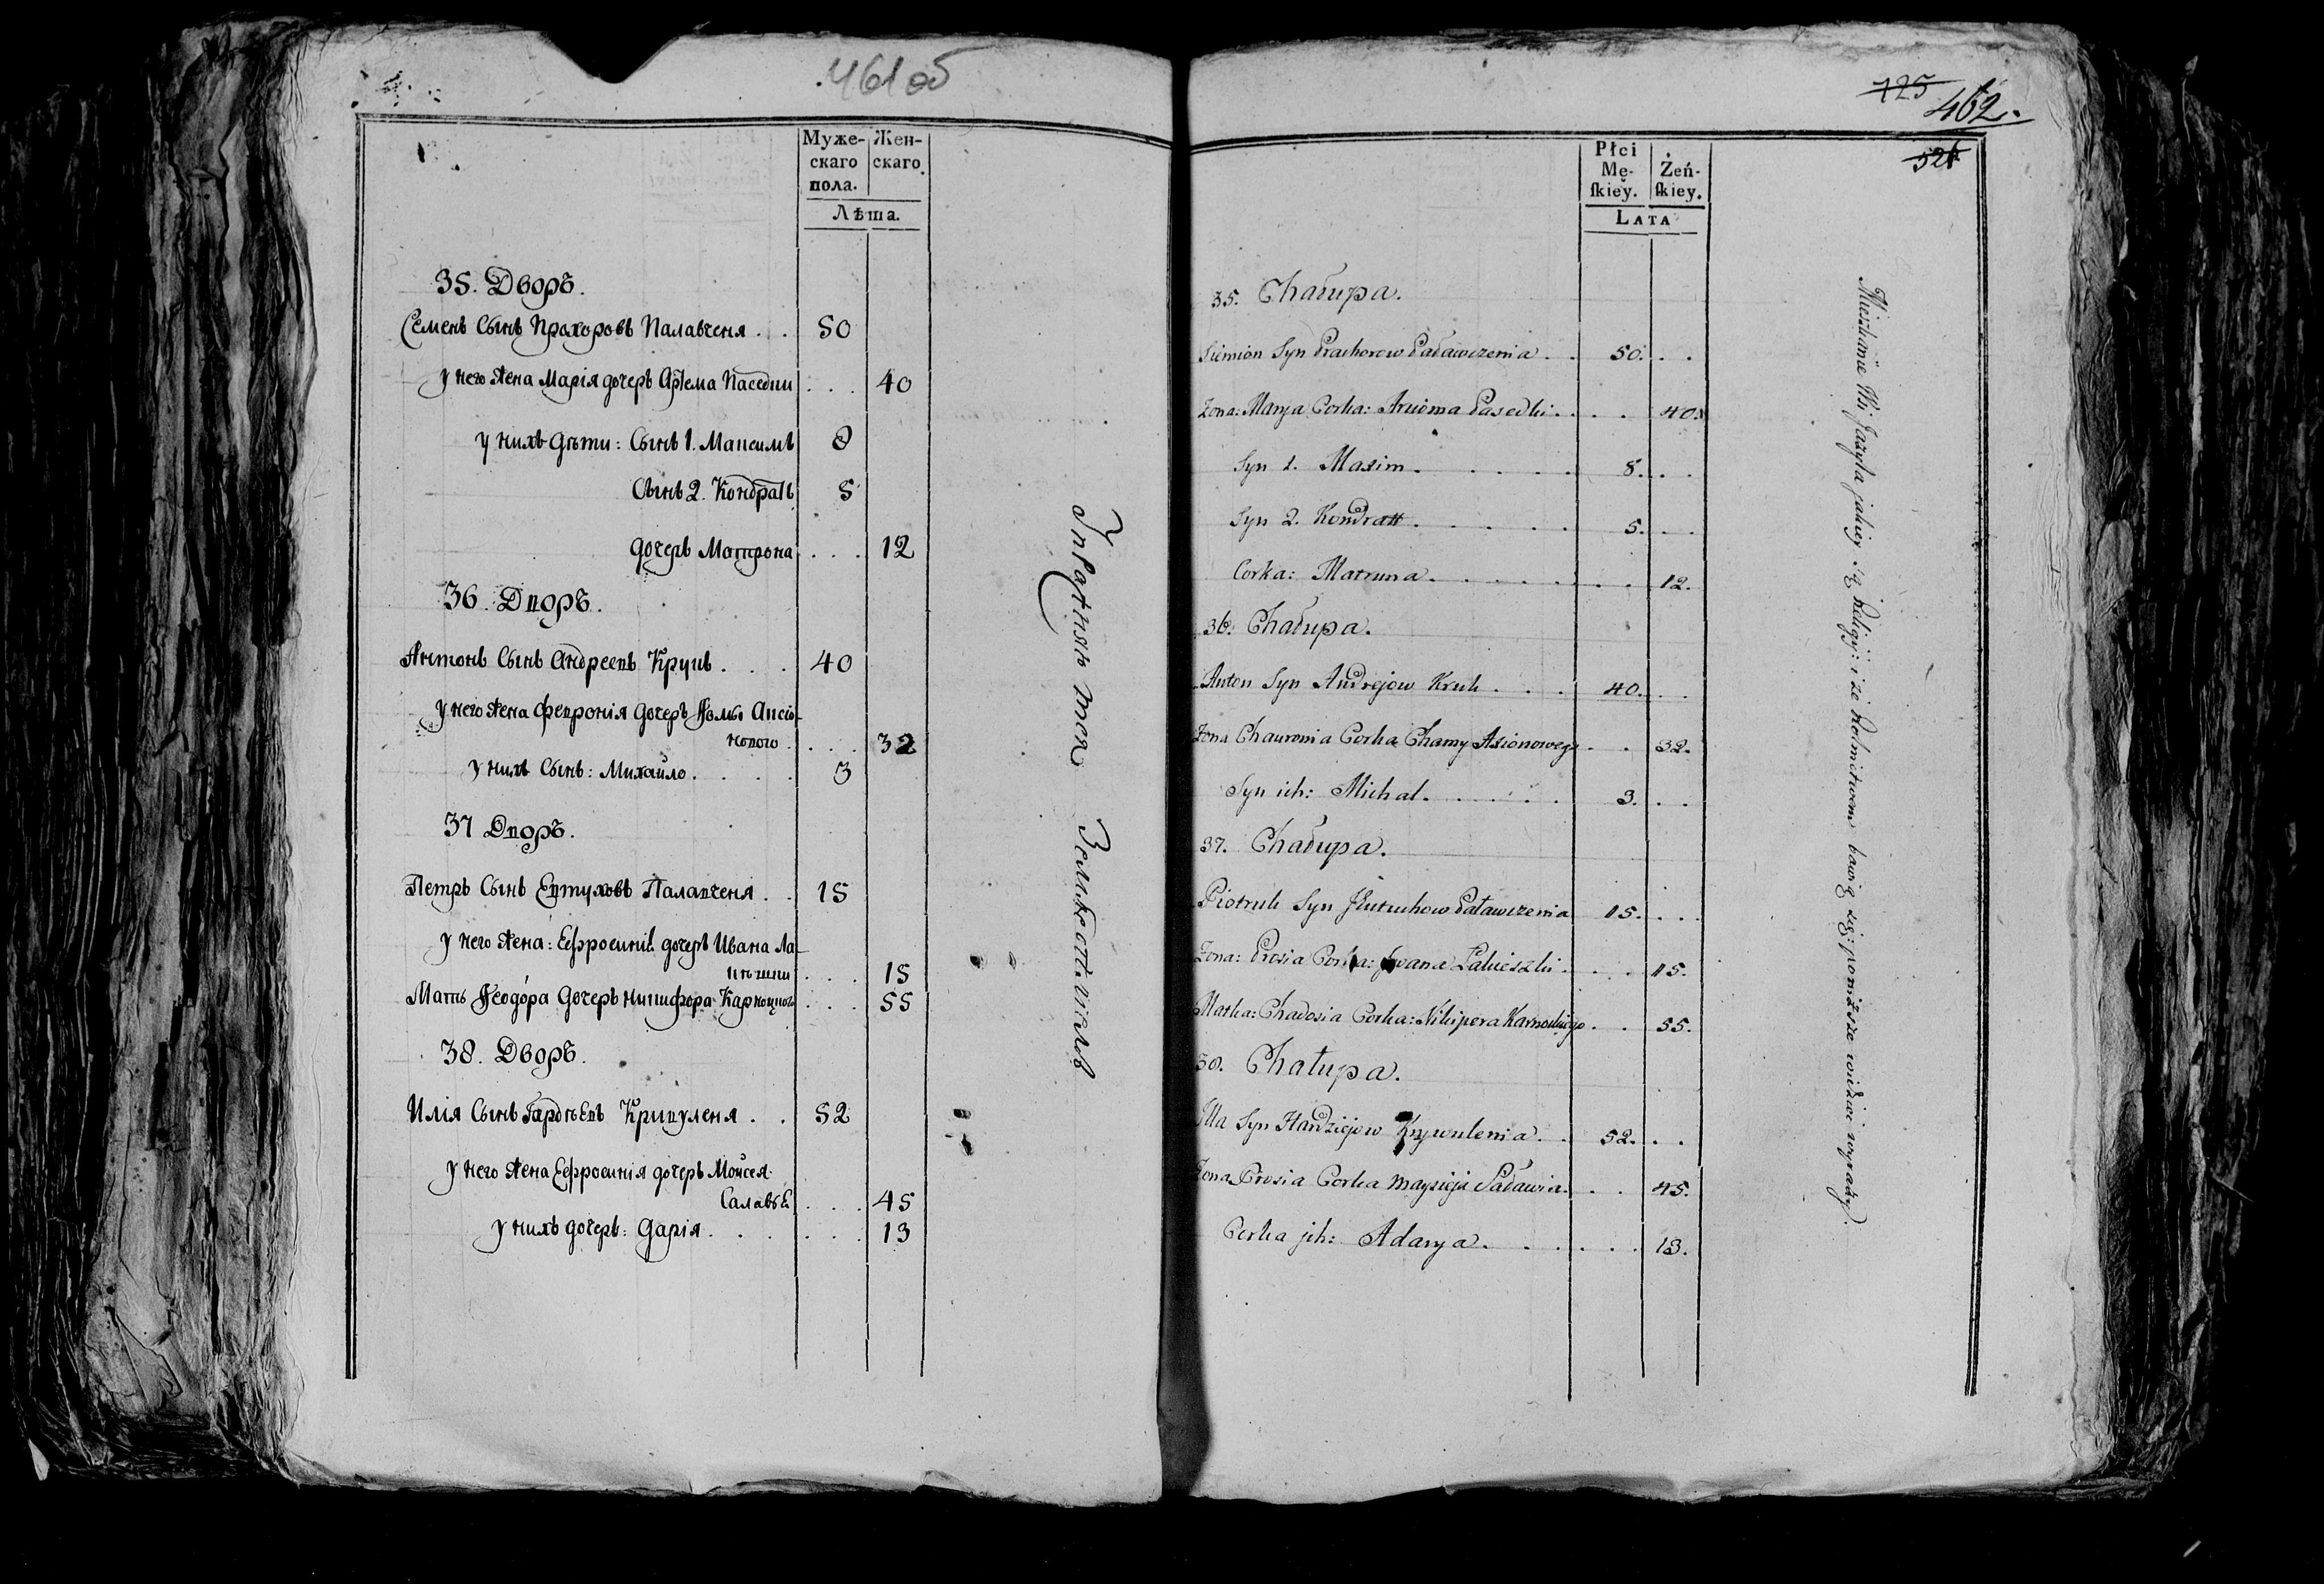 461 об
Муже-
скаго
пола.
Жен-
скаго.
Лѣта.
35. Дворъ.
Семенъ Сынъ Прохоровъ Палавченя . . 50
у него жена Марія дочерь Артема Паседки . . . 40
у нихъ дѣти: Сынъ 1. Максимъ 8
Сынъ 2. Кондратъ 5
дочерь Матрона . . . 12
36. Дворъ.
Антонъ Сынъ Андреевъ Крукъ . . . 40
у него жена Февронія дочерь Фомы Аксіо-
нового . . . . 32
у нихъ Сынъ: Михайло . . . . 3
37 Дворъ.
Петръ Сынъ Евтуховъ Палавченя . . 15
у него жена: Ефросинія дочерь Ивана Ла-
. . . 15
Мать Феодора дочерь Никифора . . . 55
38. Дворъ.
Илія Сынъ Гардѣевъ Кривуленя . . 52
у него жена Ефросинія дочерь Мойсея
Салавьѣ . . . 45
у нихъ дочерь: Дарія . . . . . . . 13
125
462.
Płci
Mę-
skiey.
Żeń-
skiey.
LATA
35. Chałupa.
Siemion Syn Prachorow Paławczenia . . 50. . .
Żona: Marya Corka: Arcioma Pasedki . . . . 40.
Syn 1. Maxim . . . . . 8. . .
Syn 2. Kondratt . . . . . 5. . .
Corka: Matruna . . . . . . . 12.
36. Chałupa.
Anton Syn Andrejow Kruk . . . 40. . .
Żona Chauronia Corka Chamy Axionowego . . 32.
Syn ich: Michal . . . . . 3. . .
37. Chałupa.
Piotruk Syn Jeutuchow Paławczenia 15. . . .
Żona: Prosia Corka: Jwana . . . 15.
Matka: Chadosia Corka: Nikipera Karnockiego . . 55.
38. Chałupa.
Illa Syn Hardziejow Krywulenia . . 52. . .
Żona Prosia Corka Mayzieja Saławia . . . 45.
Corka jch: Adarya . . . . . . 13.
Mieszkanie jakiey są Religij: i ze bawią się: poniższe